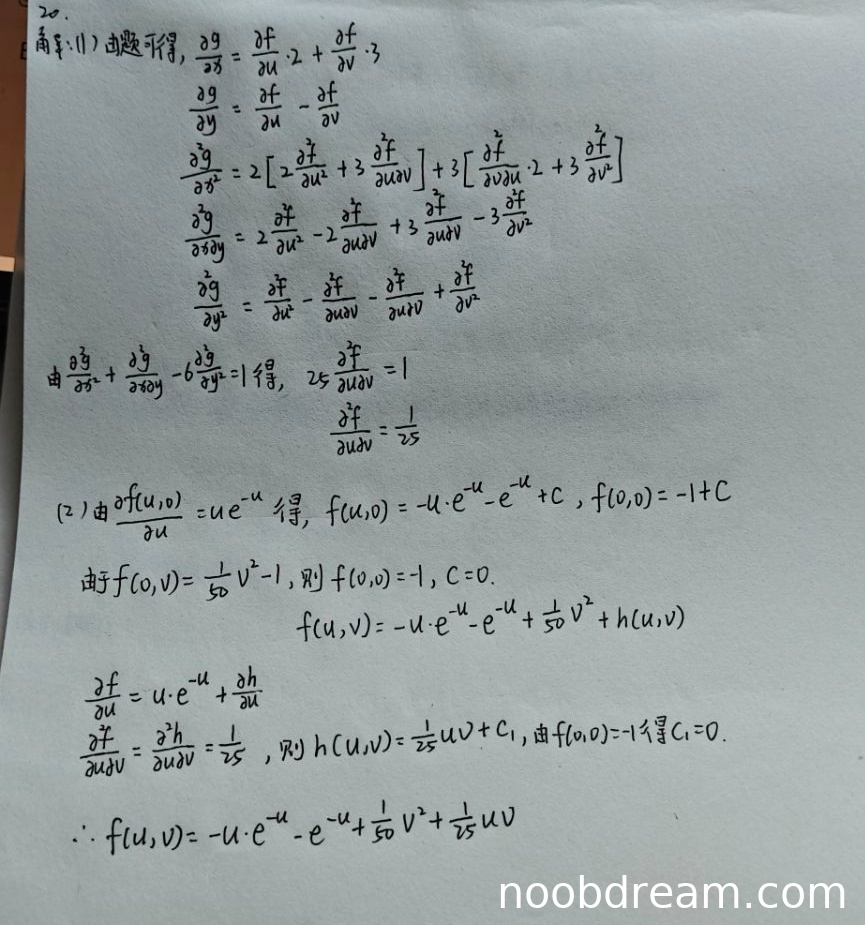 20.
解:(1)由题可得, ∂g/∂x = ∂f/∂u·2 + ∂f/∂v·3
∂g/∂y = ∂f/∂u - ∂f/∂v
∂²g/∂x² = 2[2∂²f/∂u² + 3∂²f/∂u∂v] + 3[∂²f/∂v∂u·2 + 3∂²f/∂v²]
∂²g/∂x∂y = 2∂²f/∂u² - 2∂²f/∂u∂v + 3∂²f/∂u∂v - 3∂²f/∂v²
∂²g/∂y² = ∂²f/∂u² - ∂²f/∂u∂v - ∂²f/∂u∂v + ∂²f/∂v²
由∂²g/∂x² + ∂²g/∂x∂y - 6∂²g/∂y² = 1得, 25∂²f/∂u∂v = 1
∂²f/∂u∂v = 1/25
(2)由∂f(u,0)/∂u = ue⁻ᵘ 得, f(u,0) = -u·e⁻ᵘ - e⁻ᵘ + C, f(0,0) = -1+C
由于f(0,v) = 1/50 v² - 1, 则f(0,0) = -1, C=0.
f(u,v) = -u·e⁻ᵘ - e⁻ᵘ + 1/50 v² + h(u,v)
∂f/∂u = u·e⁻ᵘ + ∂h/∂u
∂²f/∂u∂v = ∂²h/∂u∂v = 1/25, 则h(u,v) = 1/25 uv + C₁, 由f(0,0)=-1得C₁=0.
∴ f(u,v) = -u·e⁻ᵘ - e⁻ᵘ + 1/50 v² + 1/25 uv
noobdream.com